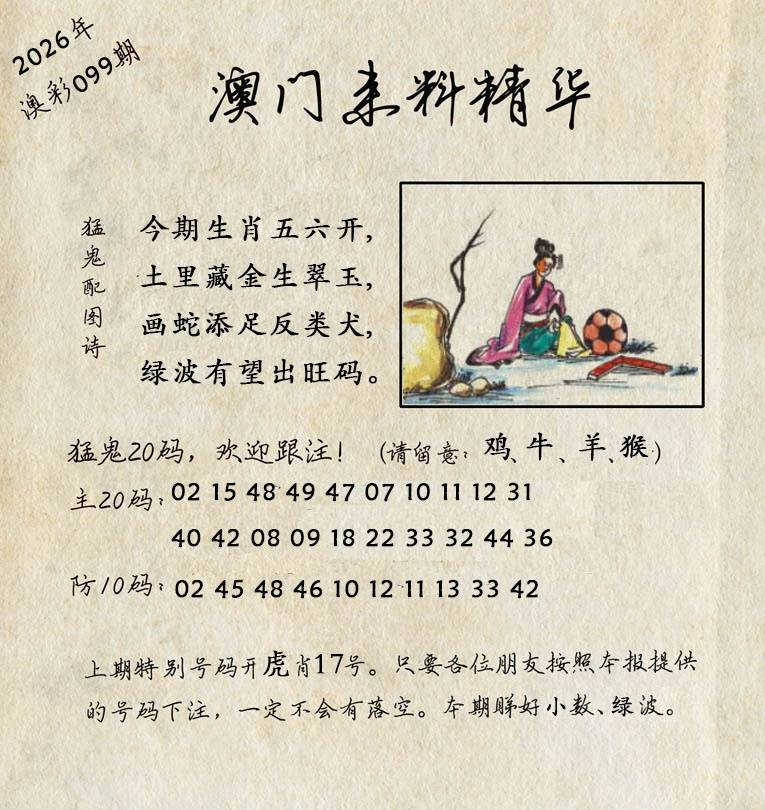 2026年
澳彩099期
澳门来料精华
猛鬼配图诗
今期生肖五六开,
土里藏金生翠玉,
画蛇添足反类犬,
绿波有望出旺码。
猛鬼20码，欢迎跟注！（请留意：鸡、牛、羊、猴）
主20码：02 15 48 49 47 07 10 11 12 31
40 42 08 09 18 22 33 32 44 36
防10码：02 45 48 46 10 12 11 13 33 42
上期特别号码开虎肖17号。只要各位朋友按照本报提供
的号码下注，一定不会有落空。本期睇好小数、绿波。